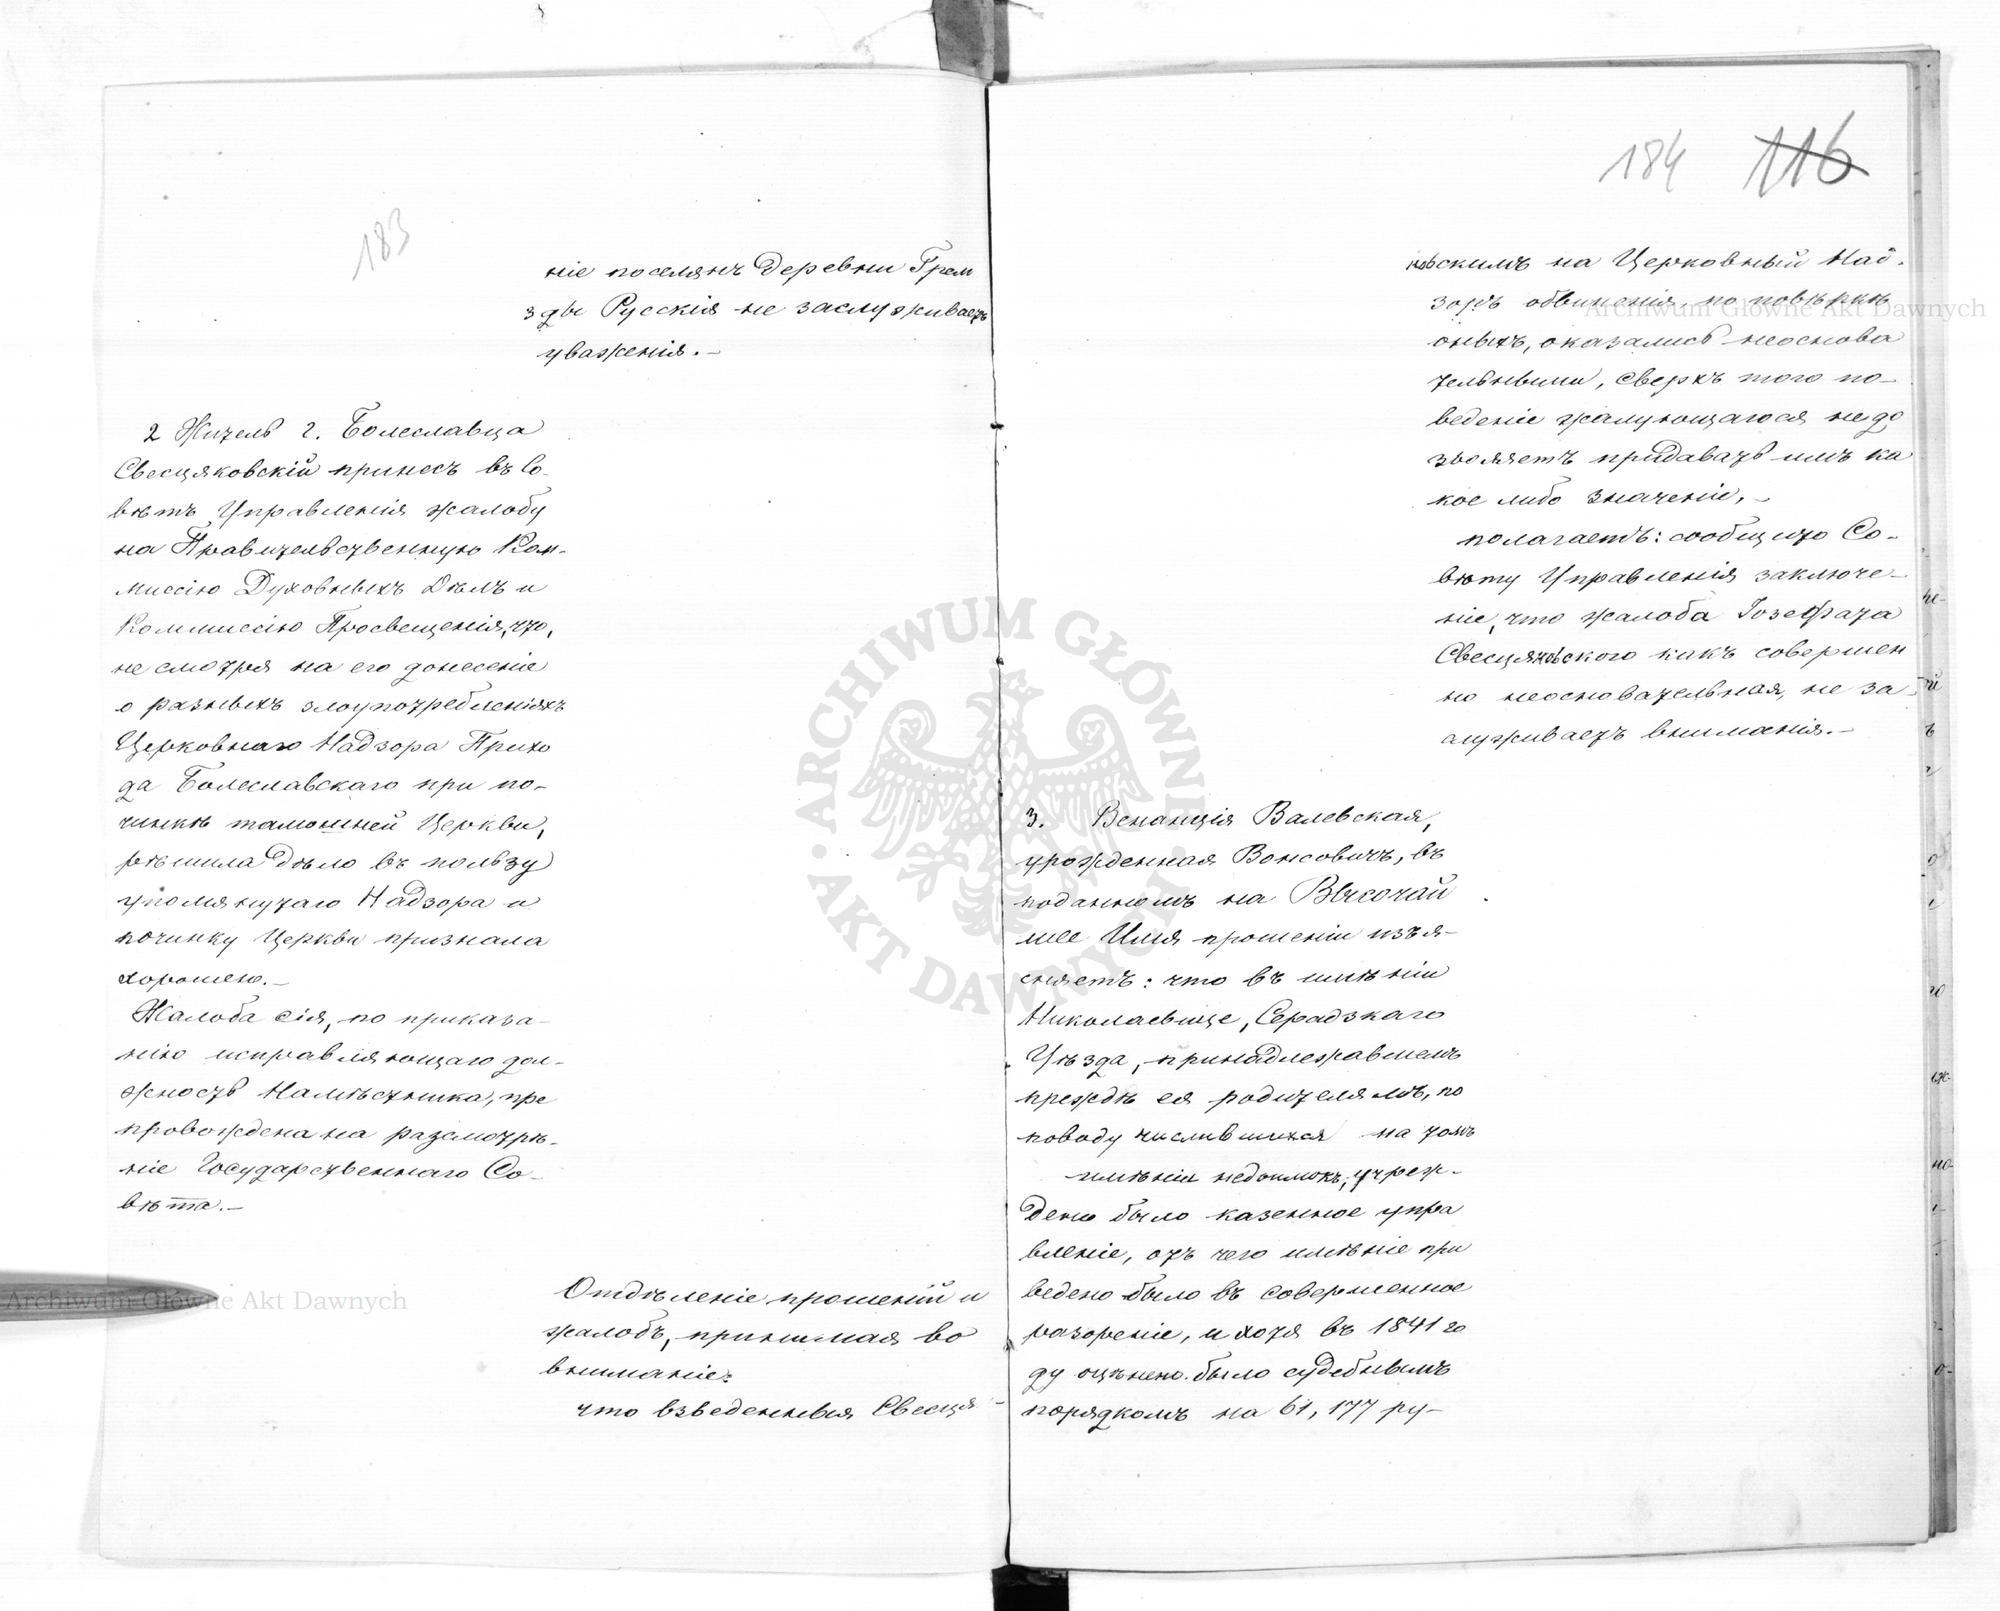 183
ніе поселянъ Деревни Грем
зды Русскія не заслуживаетъ
уваженія.—
2 Житель г. Болеславца
Свесцяковскій принесъ въ Со-
вѣтъ Управленія жалобу
на Правительственную Ком-
миссію Духовныхъ Дѣлъ и
Коммиссію Просвещенія, что,
не смотря на его донесеніе
о разныхъ злоупотребленіяхъ
Церковнаго Надзора Прихо
да Болеславскаго при по-
чинкѣ тамошней Церкви,
рѣшила Дѣло въ пользу
упомянутаго Надзора и
починку Церкви признала
хорошею.—
Жалоба сія, по приказа-
нію исправляющаго дол-
жность Намѣстника, пре
провождена на разсмотрѣ-
ніе Государственнаго Со-
вѣта.—
Отдѣленіе прошеній и
жалобъ, принимая во
вниманіе:
что взведенныя Свесця-
184 116
новскимъ на Церковный Над-
зоръ обвиненія, по повѣркѣ
оныхъ, оказались неоснова
тельными, сверхъ того по-
веденіе жалующагося не до
зволяетъ придавать имъ ка
кое либо значеніе,—
полагаетъ: сообщить Со-
вѣту Управленія заключе-
ніе, что жалоба Іозефата
Свесцяновского какъ совершен
но неосновательная, не за-
служиваетъ вниманія.—
3. Венанція Валевская,
урожденная Вонсовичъ, въ
поданномъ на Высочай
шее Имя прошеніи изъя-
сняетъ: что въ имѣніи
Николаевице, Серадзкаго
Уѣзда, принадлежавшемъ
преждѣ ея родителямъ, по
поводу числившихся на томъ
имѣніи недоимокъ, учреж-
дено было казенное упра
вленіе, отъ чего имѣніе при
ведено было въ совершенное
разореніе, и хотя въ 1841 го
ду оцѣнено было судебнымъ
порядкомъ на 61,177 ру-
Archiwum Główne Akt Dawnych
Archiwum Główne Akt Dawnych
ARCHIWUM GŁÓWNE · AKT DAWNYCH ·